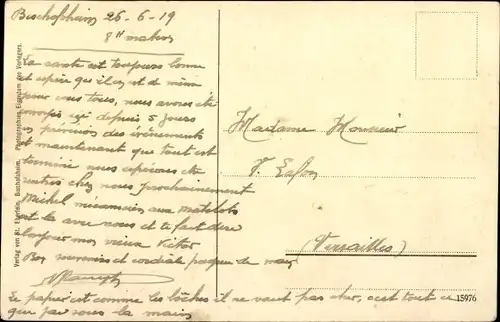 Bischofsheim 26-6-19
8H matin
La santé est toujours bonne
et espère que il en est de même
pour vous tous, nous avons été
ici depuis 5 jours
en prévision des évènements
et maintenant que tout est
terminé nous espérons être
rentrés chez nous prochainement
Michel mécanicien aux Matelots
est là avec nous et te fait dire
bonjour mon vieux Victor
Bon souvenirs et cordiale poignée de main
Le papier est comme les boches il ne vaut pas cher, c'est tout ce
que j'ai sous la main
Madame Monsieur
V. Lafon
(Versailles)
Verlag von St. Eberlein, Bischofsheim. Photographisches Eigentum des Verlegers.
15976